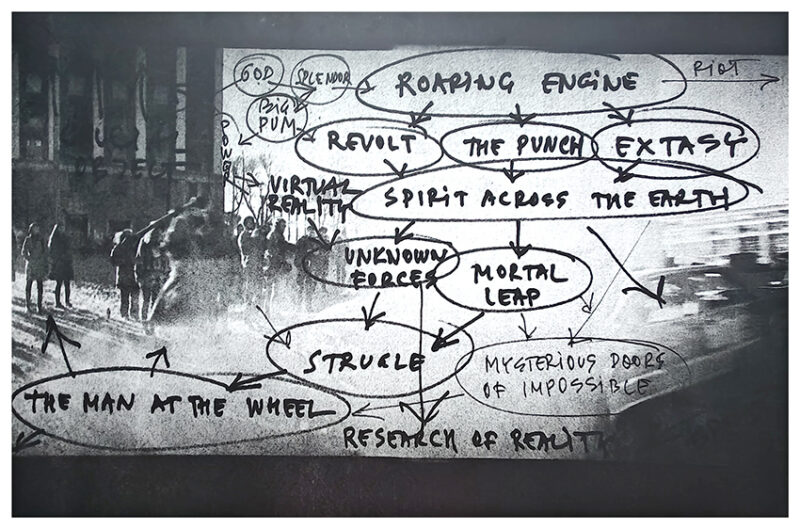 GOD
SPLENDOR
ROARING ENGINE
RIOT
BIG
PUM
POWER
REVOLT
THE PUNCH
EXTASY
VIRTUAL
REALITY
SPIRIT ACROSS THE EARTH
UNKNOWN
FORCES
MORTAL
LEAP
STRUGLE
MYSTERIOUS DOORS
OF IMPOSSIBLE
THE MAN AT THE WHEEL
RESEARCH OF REALITY